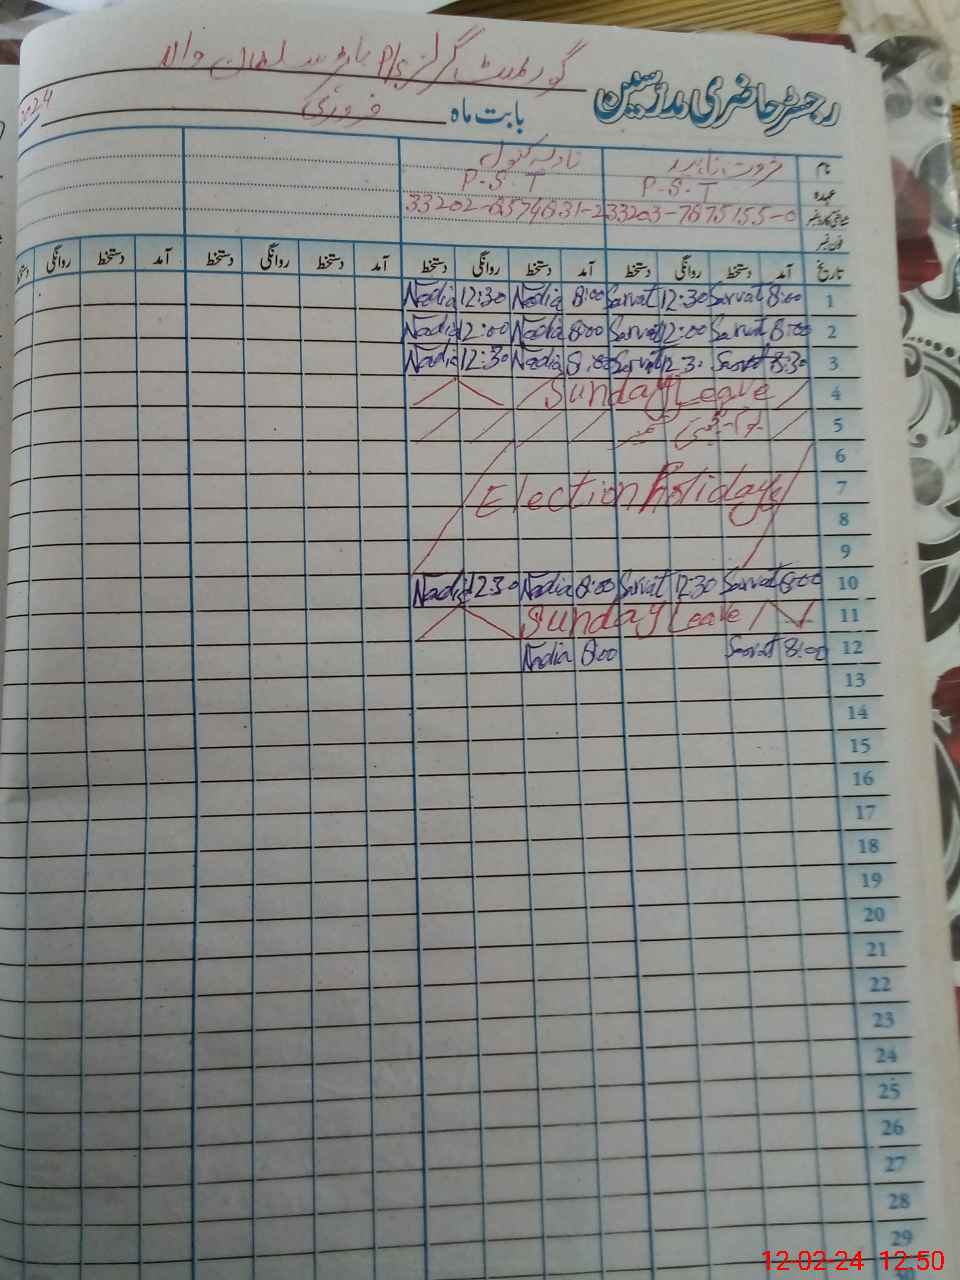 گورنمنٹ گرلز P/S
رجسٹر حاضری مدرسین
بابت ماہ فروری 2024
نام ثروت ناہید نادیہ کنول
عہدہ P.S.T P.S.T
شناختی کارڈ نمبر 33203-7875155-0
فون نمبر
تاریخ آمد دستخط روانگی دستخط آمد دستخط روانگی دستخط آمد دستخط روانگی دستخط آمد دستخط روانگی
1 8:00 Sarvat 12:30 Sarvat 8:00 Nadia 12:30 Nadia
2 8:00 Sarvat 12:00 Sarvat 8:00 Nadia 12:00 Nadia
3 8:30 Sarvat 12:30 Sarvat 8:00 Nadia 12:30 Nadia
4 Sunday Leave
5
6
7 Election Holidays
8
9
10 8:00 Sarvat 12:30 Sarvat 8:00 Nadia 12:30 Nadia
11 Sunday Leave
12 8:00 Sarvat 8:00 Nadia
13
14
15
16
17
18
19
20
21
22
23
24
25
26
27
28
29
12-02-24 12:50